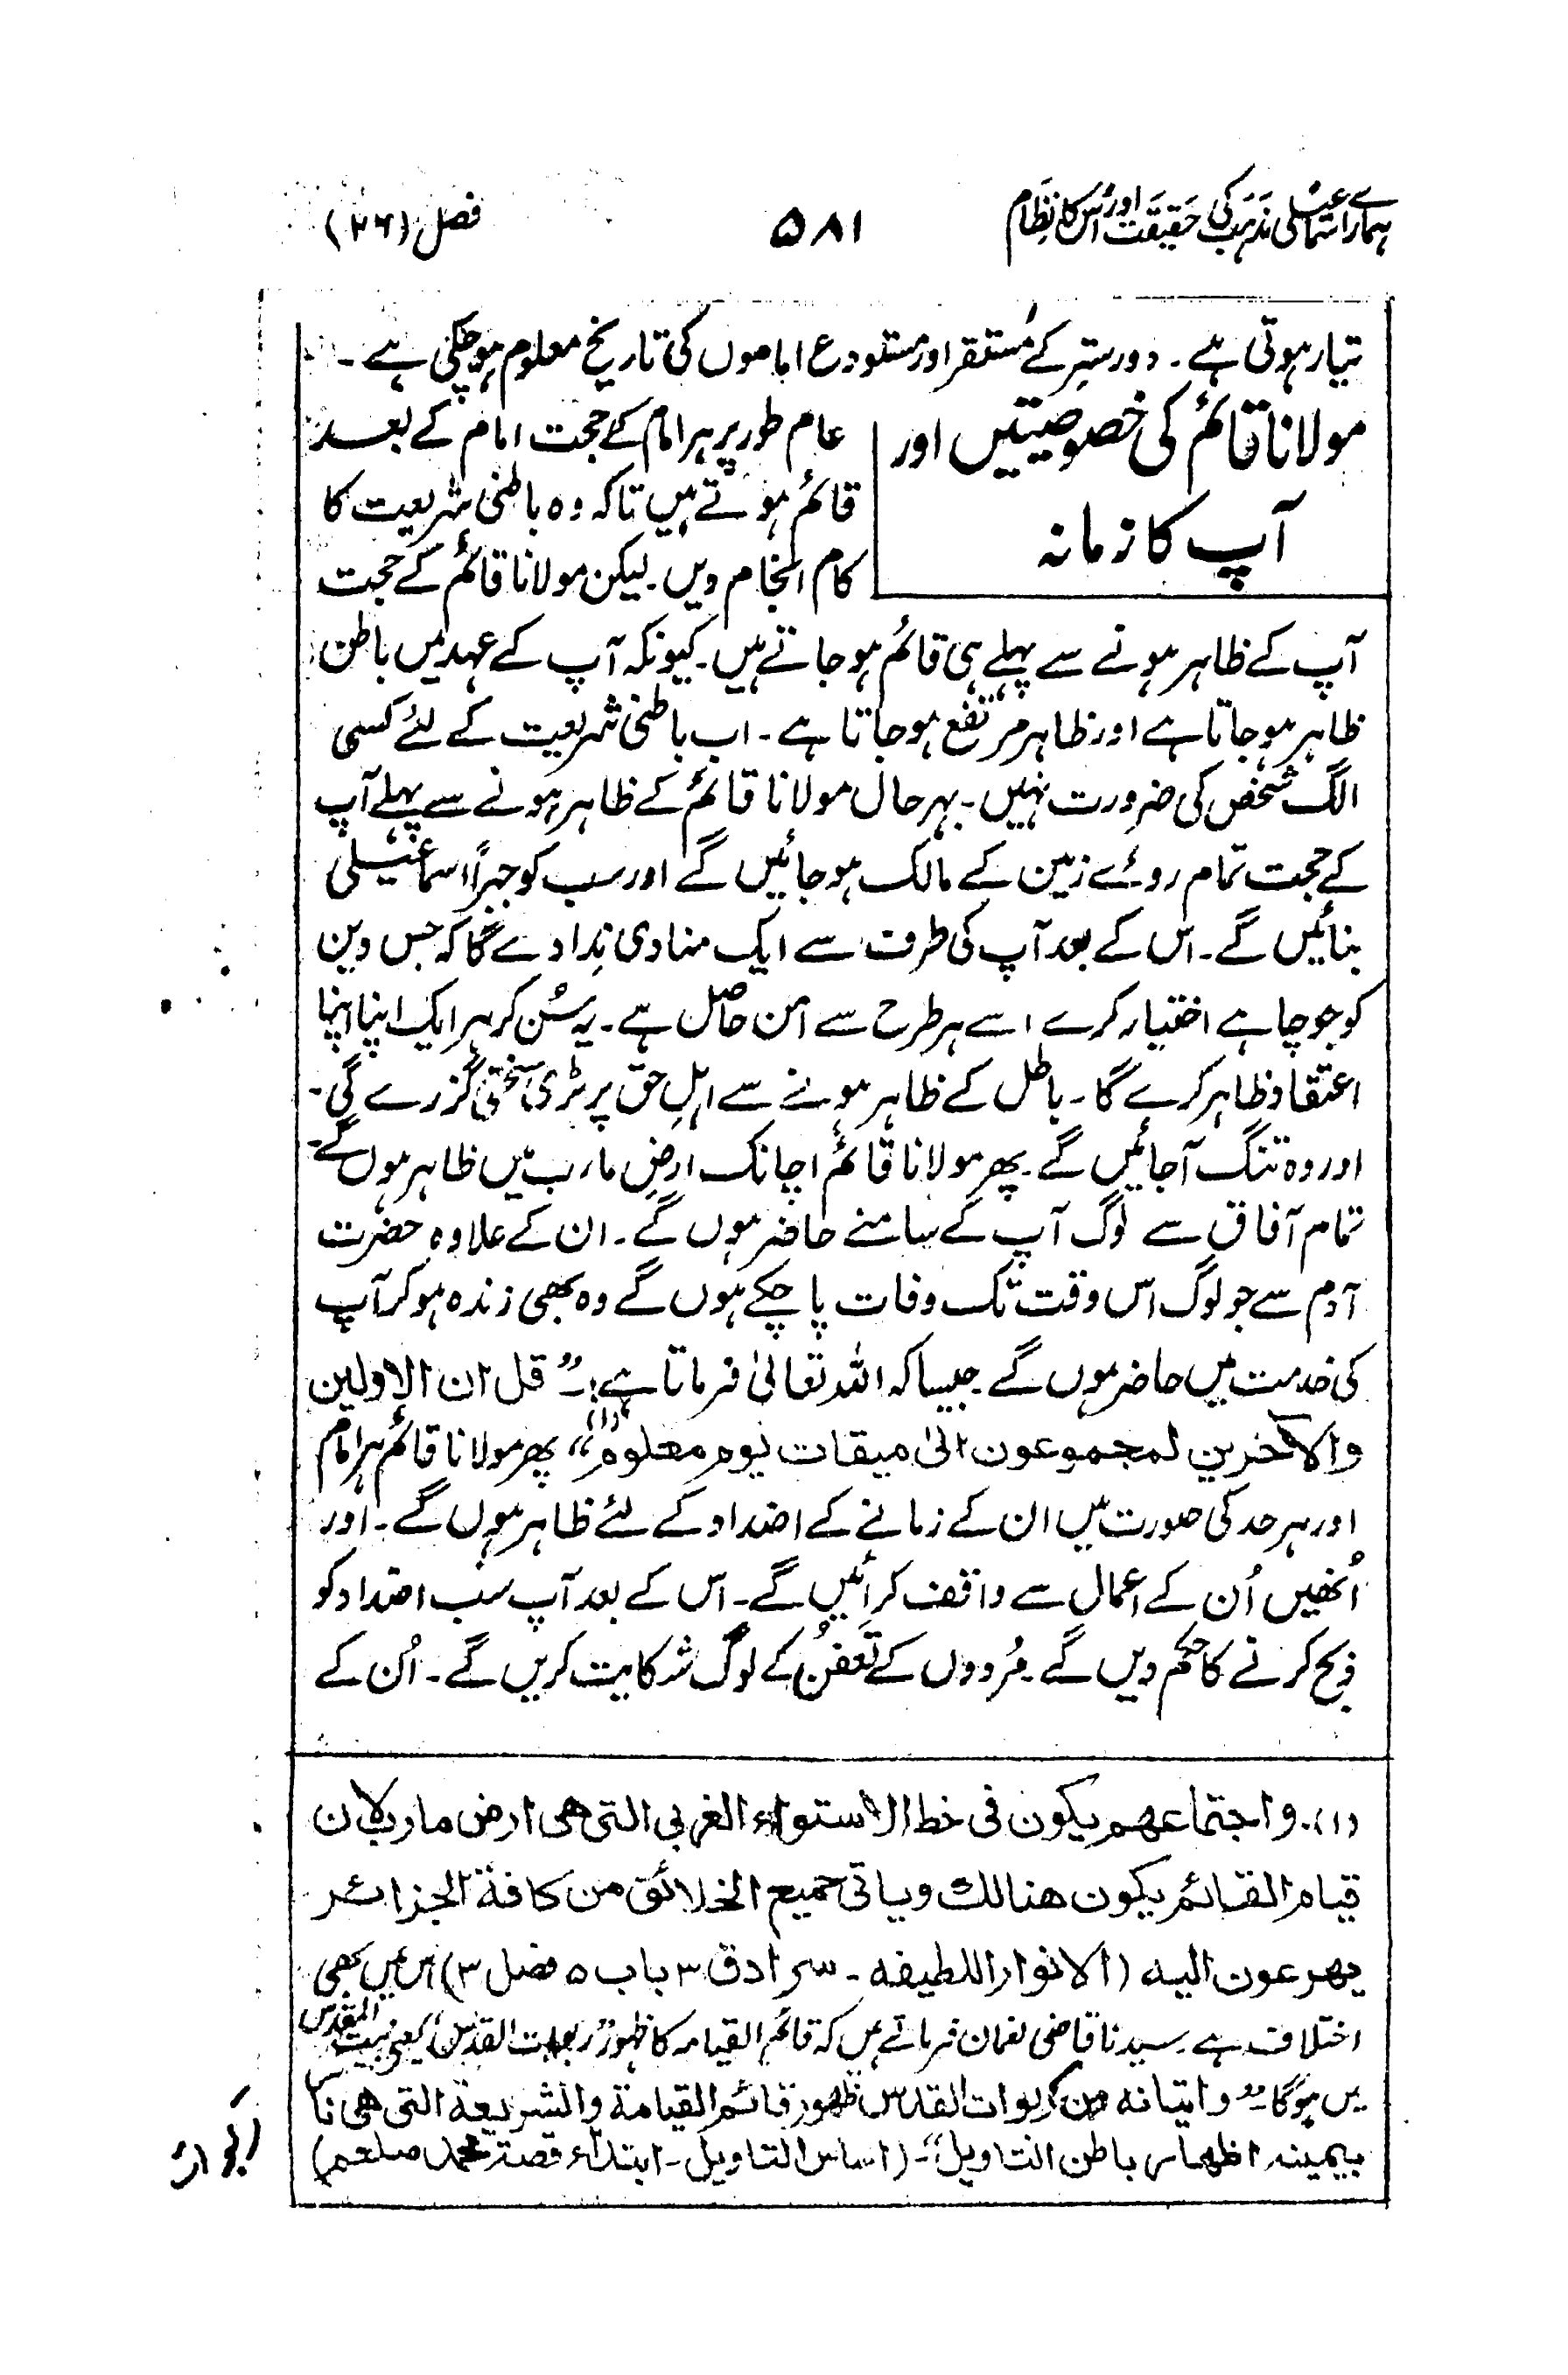 ہمارے اسماعیلی مذہب کی حقیقت اور اس کا نظام
۵۸۱
فصل (۲۶)
تیار ہوتی ہے۔ دور ستر کے مستقر اور مستودع اماموں کی تاریخ معلوم ہو چکی ہے۔
مولانا قائمؑ کی خصوصیتیں اور
آپ کا زمانہ
عام طور پر ہر امام کے حجت امام کے بعد
قائم ہوتے ہیں تاکہ وہ باطنی شریعت کا
کام انجام دیں۔ لیکن مولانا قائمؑ کے حجت
آپ کے ظاہر ہونے سے پہلے ہی قائم ہو جاتے ہیں۔ کیونکہ آپ کے عہد میں باطن
ظاہر ہو جاتا ہے اور ظاہر مرتفع ہو جاتا ہے۔ اب باطنی شریعت کے لئے کسی
الگ شخص کی ضرورت نہیں۔ بہر حال مولانا قائمؑ کے ظاہر ہونے سے پہلے آپ
کے حجت تمام روئے زمین کے مالک ہو جائیں گے اور سب کو جبراً اسماعیلی
بنائیں گے۔ اس کے بعد آپ کی طرف سے ایک منادی ندا دے گا کہ جس دین
کو جو چاہے اختیار کرے اسے ہر طرح سے امن حاصل ہے۔ یہ سُن کر ہر ایک اپنا اپنا
اعتقاد ظاہر کرے گا۔ باطل کے ظاہر ہونے سے اہلِ حق پر بڑی سختی گزرے گی۔
اور وہ تنگ آجائیں گے۔ پھر مولانا قائمؑ اچانک ارضِ مارب میں ظاہر ہوں گے۔
تمام آفاق سے لوگ آپ کے سامنے حاضر ہوں گے۔ ان کے علاوہ حضرت
آدم سے جو لوگ اس وقت تک وفات پا چکے ہوں گے وہ بھی زندہ ہو کر آپ
کی خدمت میں حاضر ہوں گے۔ جیسا کہ اللہ تعالیٰ فرماتا ہے:۔ "قل ان الاولین
والآخرین لمجموعون الیٰ میقات یوم معلوم" (۱) پھر مولانا قائمؑ ہر امام
اور ہر حد کی صورت میں ان کے زمانے کے اضداد کے لئے ظاہر ہوں گے۔ اور
اُنھیں اُن کے اعمال سے واقف کرائیں گے۔ اس کے بعد آپ سب اضداد کو
ذبح کرنے کا حکم دیں گے۔ مُردوں کے تعفن کے لوگ شکایت کریں گے۔ اُن کے
(۱)۔ واجتماعهم یکون فی خط الاستواء الغربی التی هی ارض مارب لان
قیام القائم یکون هنالک ویاتی جمیع الخلائق من کافة الجزائر
یهرعون الیه (الانوار اللطیفه۔ سرادق ۳ باب ۵ فصل ۳) اس میں بھی
اختلاف ہے۔ سیدنا قاضی نعمان فرماتے ہیں کہ قائم القیامہ کا ظہور "ربوات القدس" یعنی بیت المقدس
میں ہوگا۔ "واتیانه من ربوات القدس ظهور قائم القیامة والشریعة التی هی نا
بیمینه اظهار باطن التاویل"۔ (اساس التاویل۔ ابتداء قصة محمد صلعم)